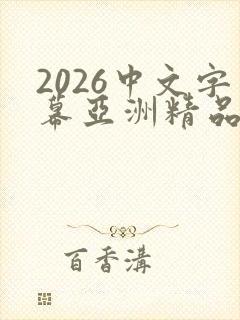 2026中文字
幕亞洲精品
百香溝